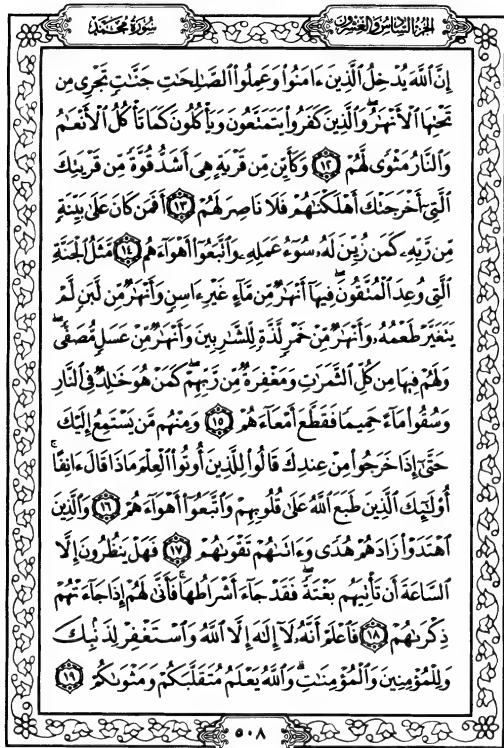 الجزء السادس والعشرون
سورة محمد
إِنَّ ٱللَّهَ يُدْخِلُ ٱلَّذِينَ ءَامَنُوا۟ وَعَمِلُوا۟ ٱلصَّـٰلِحَـٰتِ جَنَّـٰتٍ تَجْرِى مِن
تَحْتِهَا ٱلْأَنْهَـٰرُ ۖ وَٱلَّذِينَ كَفَرُوا۟ يَتَمَتَّعُونَ وَيَأْكُلُونَ كَمَا تَأْكُلُ ٱلْأَنْعَـٰمُ
وَٱلنَّارُ مَثْوًى لَّهُمْ ١٢ وَكَأَيِّن مِّن قَرْيَةٍ هِىَ أَشَدُّ قُوَّةً مِّن قَرْيَتِكَ
ٱلَّتِىٓ أَخْرَجَتْكَ أَهْلَكْنَـٰهُمْ فَلَا نَاصِرَ لَهُمْ ١٣ أَفَمَن كَانَ عَلَىٰ بَيِّنَةٍ
مِّن رَّبِّهِۦ كَمَن زُيِّنَ لَهُۥ سُوٓءُ عَمَلِهِۦ وَٱتَّبَعُوٓا۟ أَهْوَآءَهُم ١٤ مَّثَلُ ٱلْجَنَّةِ
ٱلَّتِى وُعِدَ ٱلْمُتَّقُونَ ۖ فِيهَآ أَنْهَـٰرٌ مِّن مَّآءٍ غَيْرِ ءَاسِنٍ وَأَنْهَـٰرٌ مِّن لَّبَنٍ لَّمْ
يَتَغَيَّرْ طَعْمُهُۥ وَأَنْهَـٰرٌ مِّنْ خَمْرٍ لَّذَّةٍ لِّلشَّـٰرِبِينَ وَأَنْهَـٰرٌ مِّنْ عَسَلٍ مُّصَفًّى ۖ
وَلَهُمْ فِيهَا مِن كُلِّ ٱلثَّمَرَٰتِ وَمَغْفِرَةٌ مِّن رَّبِّهِمْ ۖ كَمَنْ هُوَ خَـٰلِدٌ فِى ٱلنَّارِ
وَسُقُوا۟ مَآءً حَمِيمًا فَقَطَّعَ أَمْعَآءَهُمْ ١٥ وَمِنْهُم مَّن يَسْتَمِعُ إِلَيْكَ
حَتَّىٰٓ إِذَا خَرَجُوا۟ مِنْ عِندِكَ قَالُوا۟ لِلَّذِينَ أُوتُوا۟ ٱلْعِلْمَ مَاذَا قَالَ ءَانِفًا ۚ
أُو۟لَـٰٓئِكَ ٱلَّذِينَ طَبَعَ ٱللَّهُ عَلَىٰ قُلُوبِهِمْ وَٱتَّبَعُوٓا۟ أَهْوَآءَهُمْ ١٦ وَٱلَّذِينَ
ٱهْتَدَوْا۟ زَادَهُمْ هُدًى وَءَاتَىٰهُمْ تَقْوَىٰهُمْ ١٧ فَهَلْ يَنظُرُونَ إِلَّا
ٱلسَّاعَةَ أَن تَأْتِيَهُم بَغْتَةً ۖ فَقَدْ جَآءَ أَشْرَاطُهَا ۚ فَأَنَّىٰ لَهُمْ إِذَا جَآءَتْهُمْ
ذِكْرَىٰهُمْ ١٨ فَٱعْلَمْ أَنَّهُۥ لَآ إِلَـٰهَ إِلَّا ٱللَّهُ وَٱسْتَغْفِرْ لِذَنۢبِكَ
وَلِلْمُؤْمِنِينَ وَٱلْمُؤْمِنَـٰتِ ۗ وَٱللَّهُ يَعْلَمُ مُتَقَلَّبَكُمْ وَمَثْوَىٰكُمْ ١٩
٥٠٨